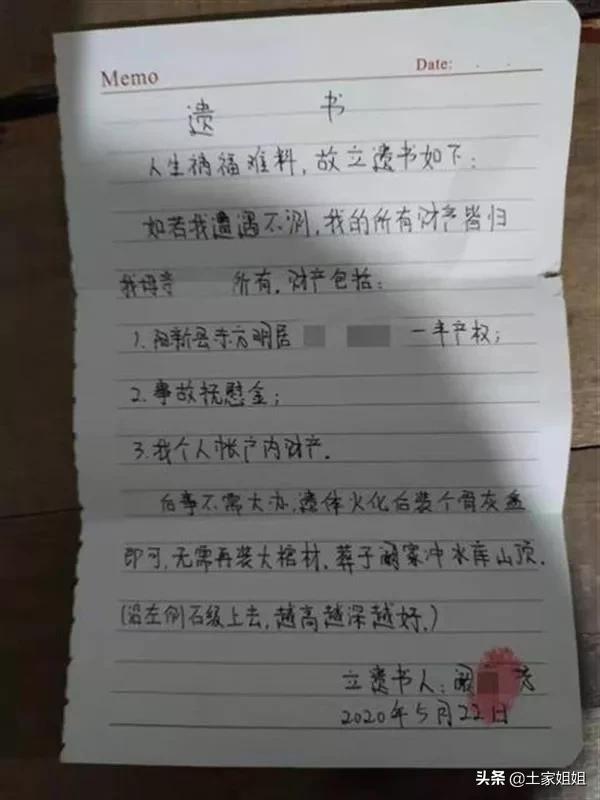 Memo
Date: . .
遗 书
人生祸福难料，故立遗书如下：
如若我遭遇不测，我的所有财产皆归
我母亲 所有，财产包括：
1.阳新县东方明居 一半产权；
2.事故抚慰金；
3.我个人帐户内财产．
后事不需大办，遗体火化后装个骨灰盒
即可，无需再装大棺材．葬于阚家冲水库山顶．
（沿左侧石级上去，越高越深越好．）
立遗书人：阚 芳
2020年5月22日
头条 @土家姐姐